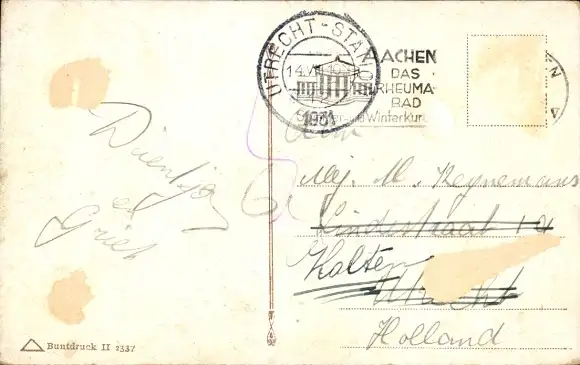 UTRECHT-STATION
14.VII
1931
AACHEN
DAS
RHEUMA
BAD
Sommer- und Winterkur
N
Dientje
en
Griet
Aan
Mej. M. Reynemans
Lindestraat 1a
Halten
Utrecht
Holland
Buntdruck II 2337